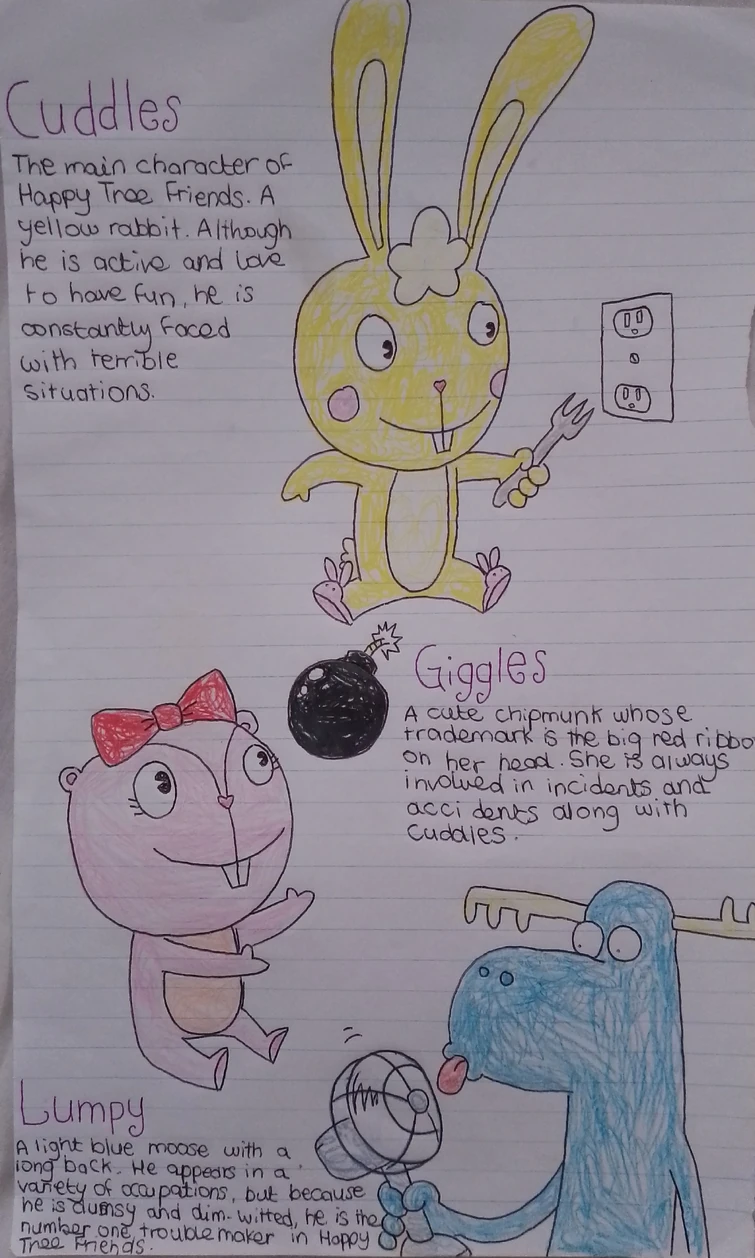 Cuddles
The main character of
Happy Tree Friends. A
yellow rabbit. Although
he is active and love
to have fun, he is
constantly faced
with terrible
situations.
Giggles
A cute chipmunk whose
trademark is the big red ribbo
on her head. She is always
involved in incidents and
acci dents along with
Cuddles.
Lumpy
A light blue moose with a
long back. He appears in a
variety of occupations, but because
he is clumsy and dim-witted, he is the
number one trouble maker in Happy
Tree Friends.